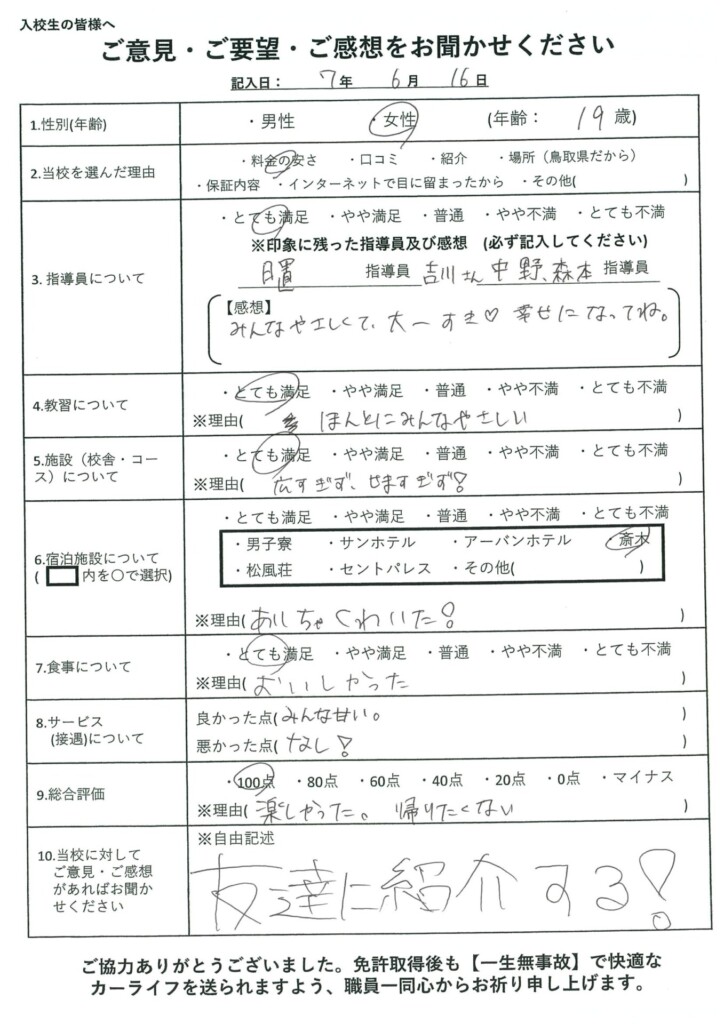 入校生の皆様へ
ご意見・ご要望・ご感想をお聞かせください
記入日： 7年 6月 16日
1.性別(年齢) ・男性 ・女性 (年齢： 19 歳)
2.当校を選んだ理由 ・料金の安さ ・口コミ ・紹介 ・場所（鳥取県だから）
・保証内容 ・インターネットで目に留まったから ・その他( )
3. 指導員について ・とても満足 ・やや満足 ・普通 ・やや不満 ・とても不満
※印象に残った指導員及び感想 (必ず記入してください)
日置 指導員 吉川さん 中野、森本 指導員
【感想】
みんなやさしくて、大一すき♡ 幸せになってね。
4.教習について ・とても満足 ・やや満足 ・普通 ・やや不満 ・とても不満
※理由( ほんとにみんなやさしい )
5.施設（校舎・コース）について ・とても満足 ・やや満足 ・普通 ・やや不満 ・とても不満
※理由( 広すぎず、せますぎず! )
6.宿泊施設について
( 内を〇で選択) ・とても満足 ・やや満足 ・普通 ・やや不満 ・とても不満
・男子寮 ・サンホテル ・アーバンホテル ・斎木
・松風荘 ・セントパレス ・その他( )
※理由( あいちゃくわいた! )
7.食事について ・とても満足 ・やや満足 ・普通 ・やや不満 ・とても不満
※理由( おいしかった )
8.サービス
(接遇)について 良かった点( みんな甘い。 )
悪かった点( なし! )
9.総合評価 ・100点 ・80点 ・60点 ・40点 ・20点 ・0点 ・マイナス
※理由( 楽しかった。 帰りたくない )
10.当校に対して
ご意見・ご感想
があればお聞か
せください ※自由記述
友達に紹介する!
ご協力ありがとうございました。免許取得後も【一生無事故】で快適な
カーライフを送られますよう、職員一同心からお祈り申し上げます。